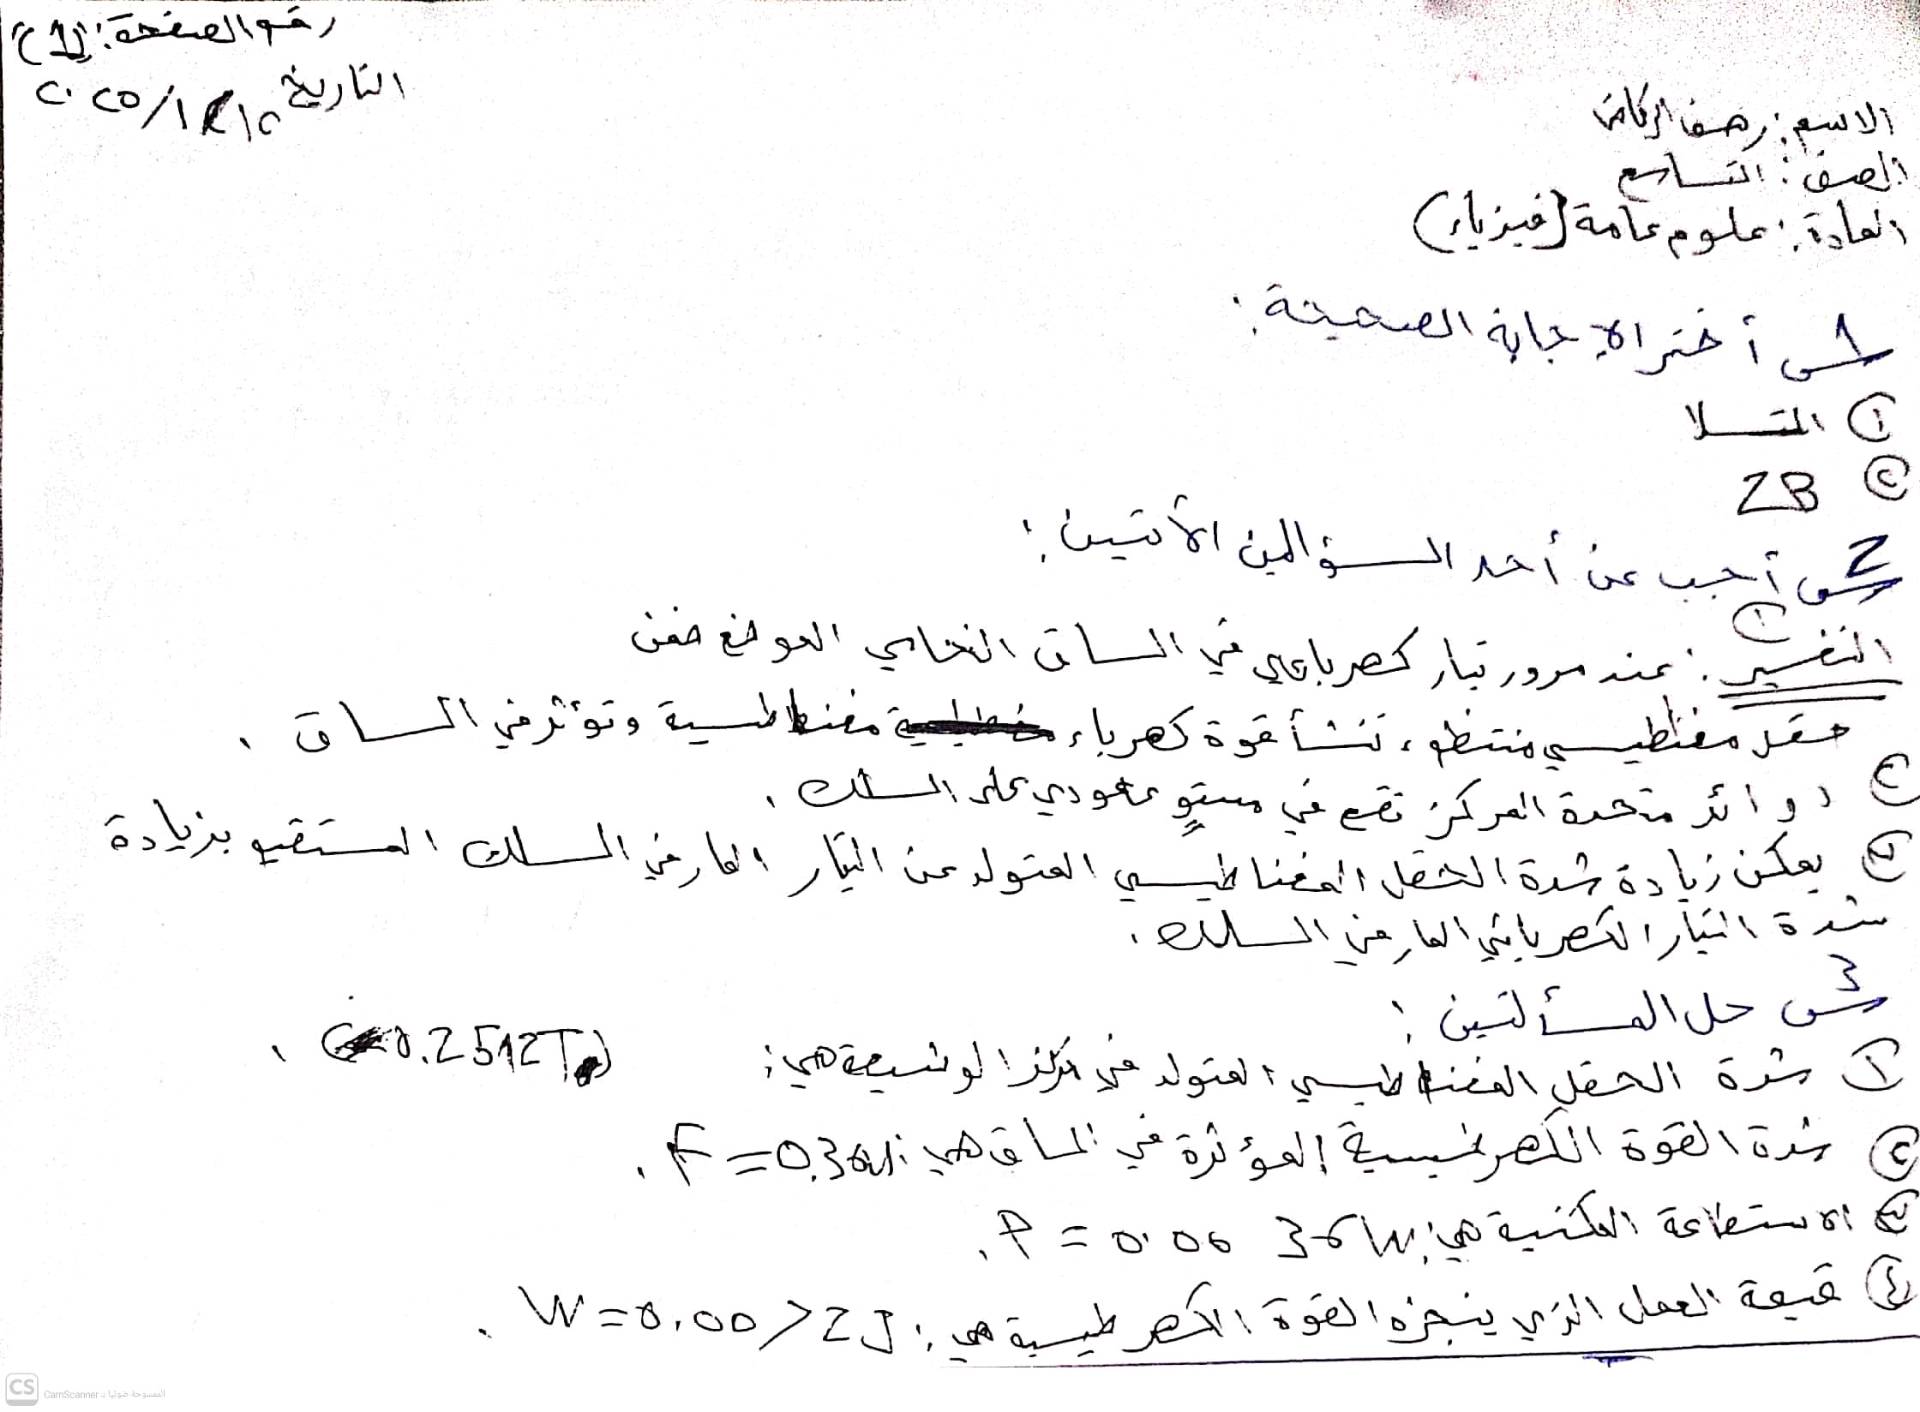 رقم الصفحة: (1)
التاريخ ٢٠٢٥/١٢/١٥
الاسم: رهف
الصف: التاسع
المادة: علوم عامة (فيزياء)
س1 أختر الإجابة الصحيحة:
① التسلا
② 2B
س2 أجب عن أحد السؤالين الأتيين:
①
التفسير: عند مرور تيار كهربائي في الساق النحاسي الموضع ضمن
حقل مغناطيسي منتظم، تنشأ قوة كهرباء مغناطيسية وتؤثر في الساق.
② دوائر متحدة المركز تقع في مستوٍ عمودي على السلك.
③ يمكن زيادة شدة الحقل المغناطيسي المتولد عن التيار المار في السلك المستقيم بزيادة
شدة التيار الكهربائي المار في السلك.
س3 حل المسألتين:
① شدة الحقل المغناطيسي المتولد في مركز الوشيعة هي: (0.2512T).
② شدة القوة الكهرطيسية المؤثرة في الساق هي: F=0.36N.
③ الاستطاعة المكنية هي: P = 0.0036W.
④ قيمة العمل الذي ينجزه القوة الكهرطيسية هي: W=0.0072J.
CS
الممسوحة ضوئيا بـ CamScanner